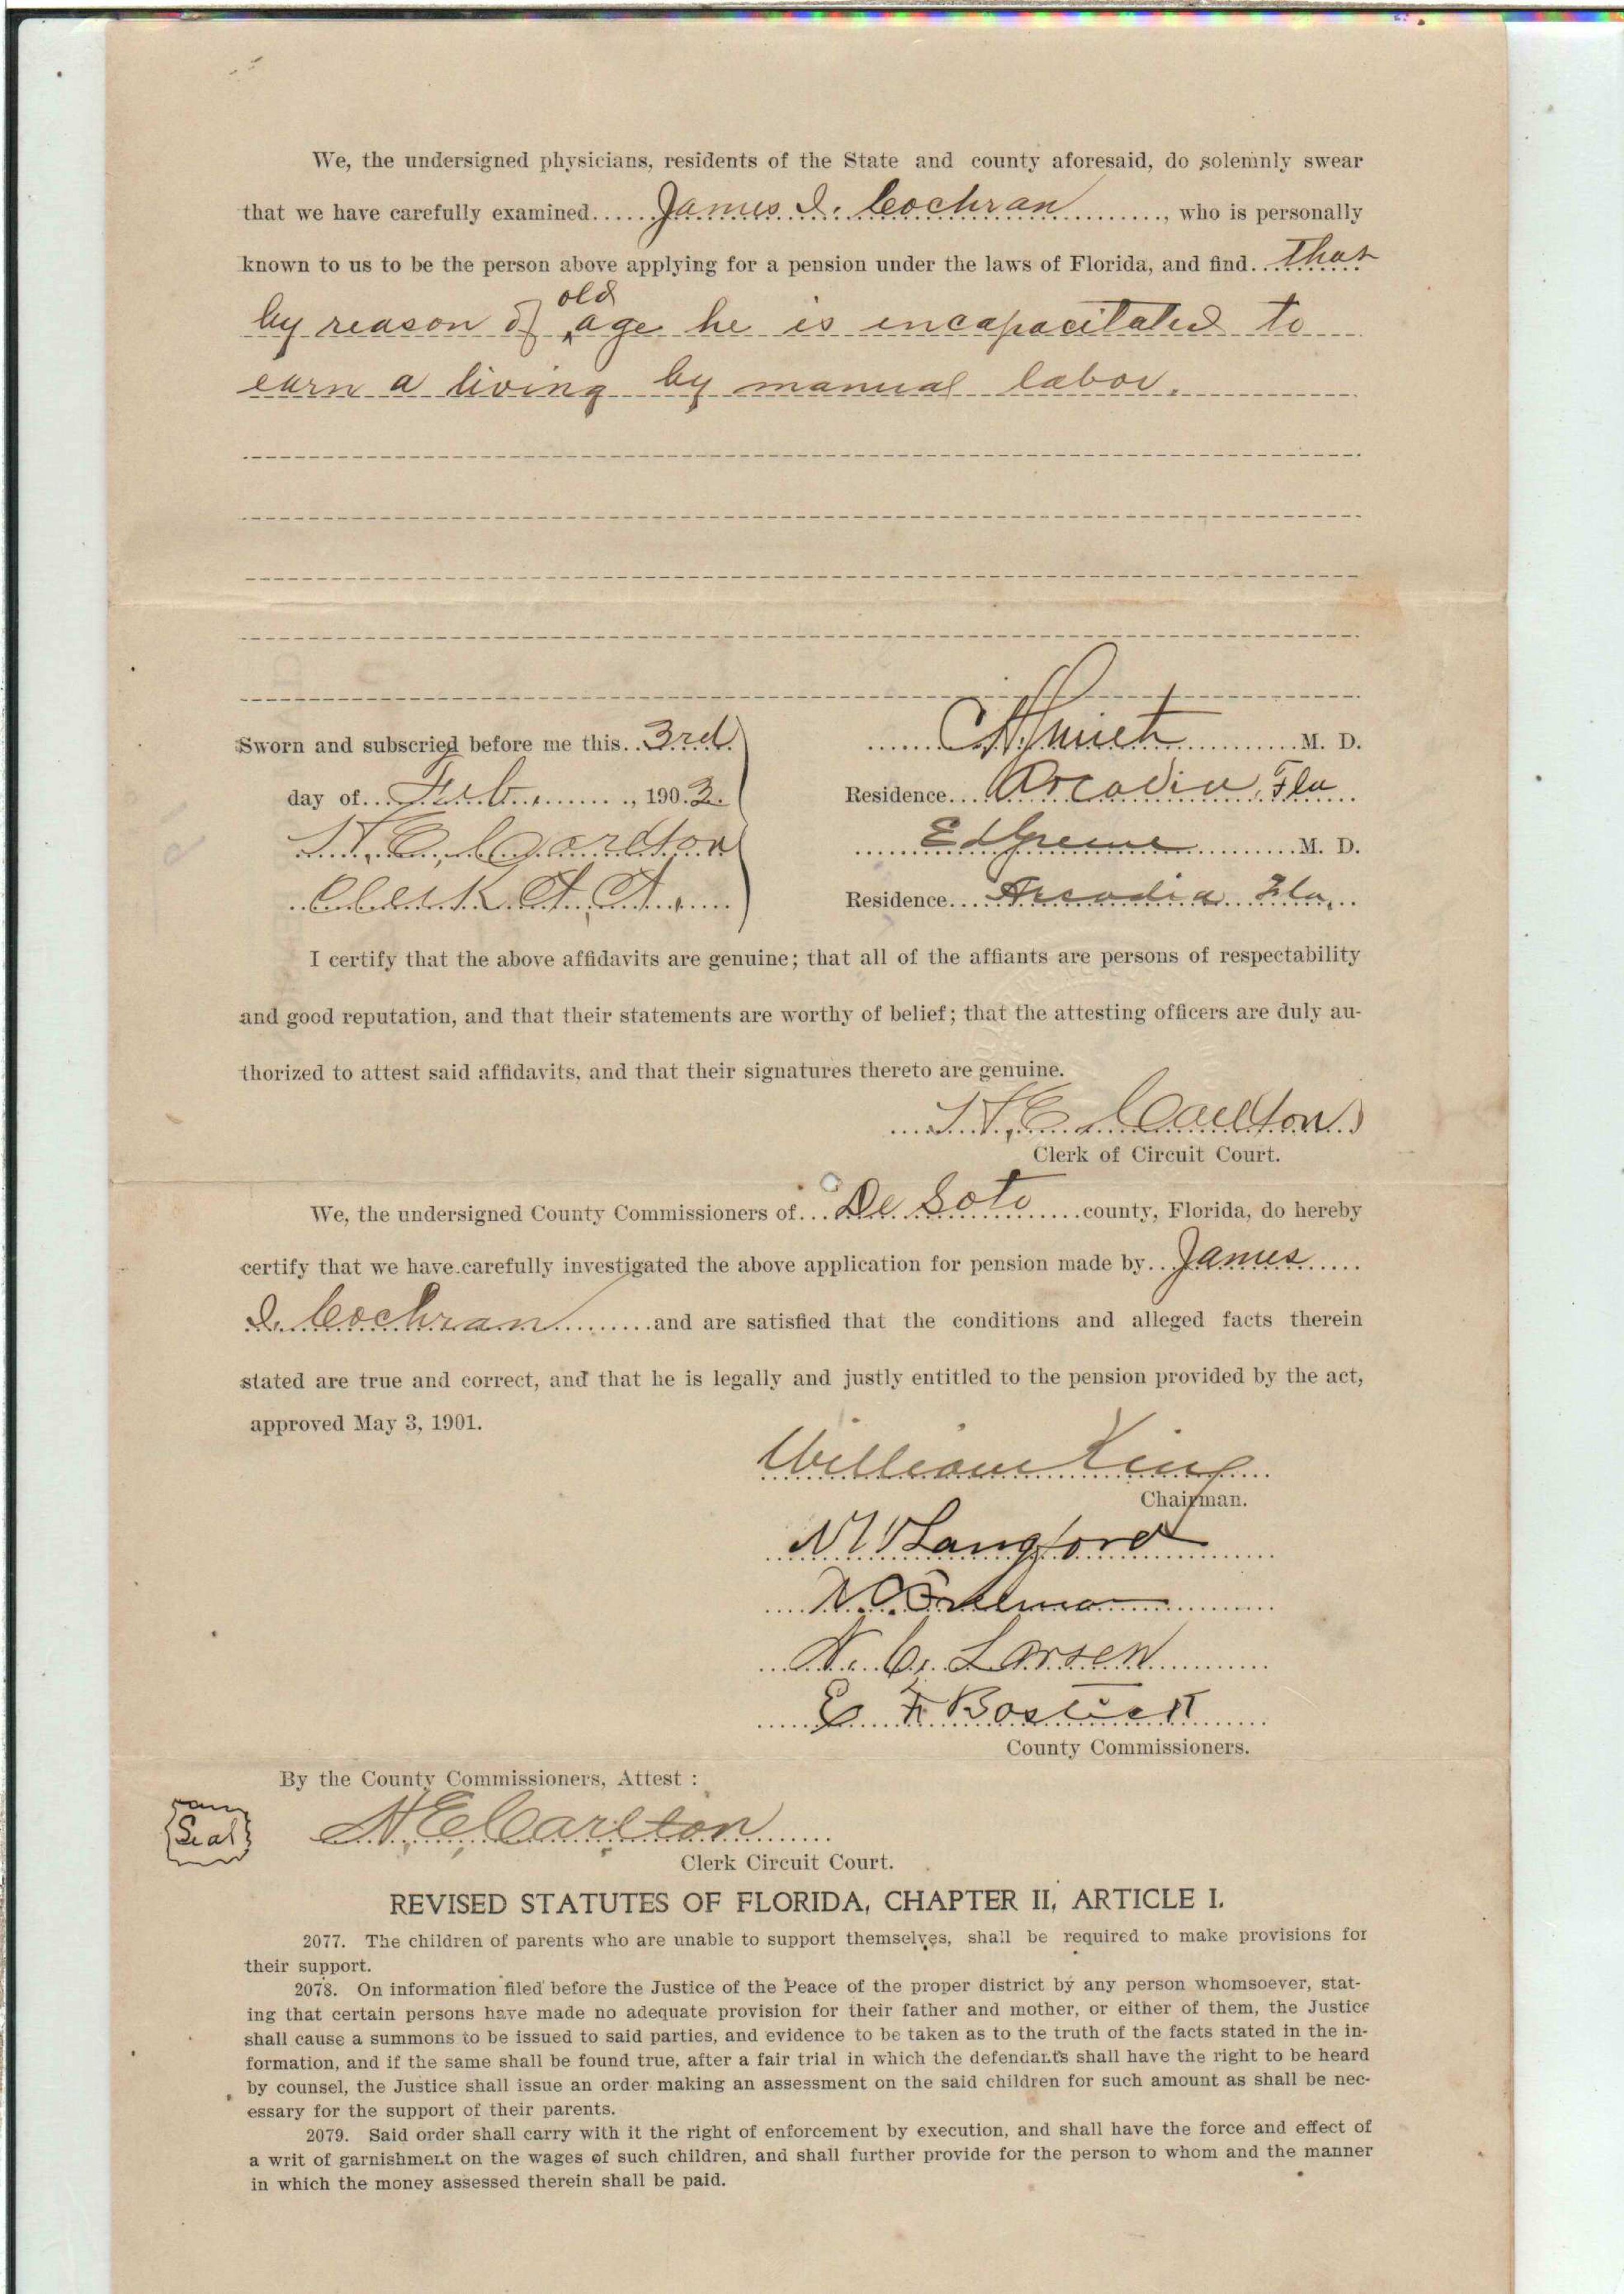 We, the undersigned physicians, residents of the State and county aforesaid, do solemnly swear
that we have carefully examined......James I. Cochran.........., who is personally
known to us to be the person above applying for a pension under the laws of Florida, and find...that
old
by reason of ^ age he is incapacitated to
earn a living by manual labor.
Sworn and subscried before me this..3rd.
M. D.
day of...Feb..........., 190.3.
Residence...Arcadia, Fla..
N. E. Carlton
E L Greene M. D.
Clerk Ct. Ct.
Residence....Arcadia Fla...
I certify that the above affidavits are genuine; that all of the affiants are persons of respectability
and good reputation, and that their statements are worthy of belief; that the attesting officers are duly au-
thorized to attest said affidavits, and that their signatures thereto are genuine.
N. E. Carlton
Clerk of Circuit Court.
We, the undersigned County Commissioners of...De Soto.....county, Florida, do hereby
certify that we have carefully investigated the above application for pension made by..James.....
I. Cochran.........and are satisfied that the conditions and alleged facts therein
stated are true and correct, and that he is legally and justly entitled to the pension provided by the act,
approved May 3, 1901.
William King
Chairman.
Langford
N. C. Larsen
E. F. Bostick
County Commissioners.
By the County Commissioners, Attest :
Seal
N. E. Carlton
Clerk Circuit Court.
REVISED STATUTES OF FLORIDA, CHAPTER II, ARTICLE I.
2077. The children of parents who are unable to support themselves, shall be required to make provisions for
their support.
2078. On information filed before the Justice of the Peace of the proper district by any person whomsoever, stat-
ing that certain persons have made no adequate provision for their father and mother, or either of them, the Justice
shall cause a summons to be issued to said parties, and evidence to be taken as to the truth of the facts stated in the in-
formation, and if the same shall be found true, after a fair trial in which the defendants shall have the right to be heard
by counsel, the Justice shall issue an order making an assessment on the said children for such amount as shall be nec-
essary for the support of their parents.
2079. Said order shall carry with it the right of enforcement by execution, and shall have the force and effect of
a writ of garnishment on the wages of such children, and shall further provide for the person to whom and the manner
in which the money assessed therein shall be paid.